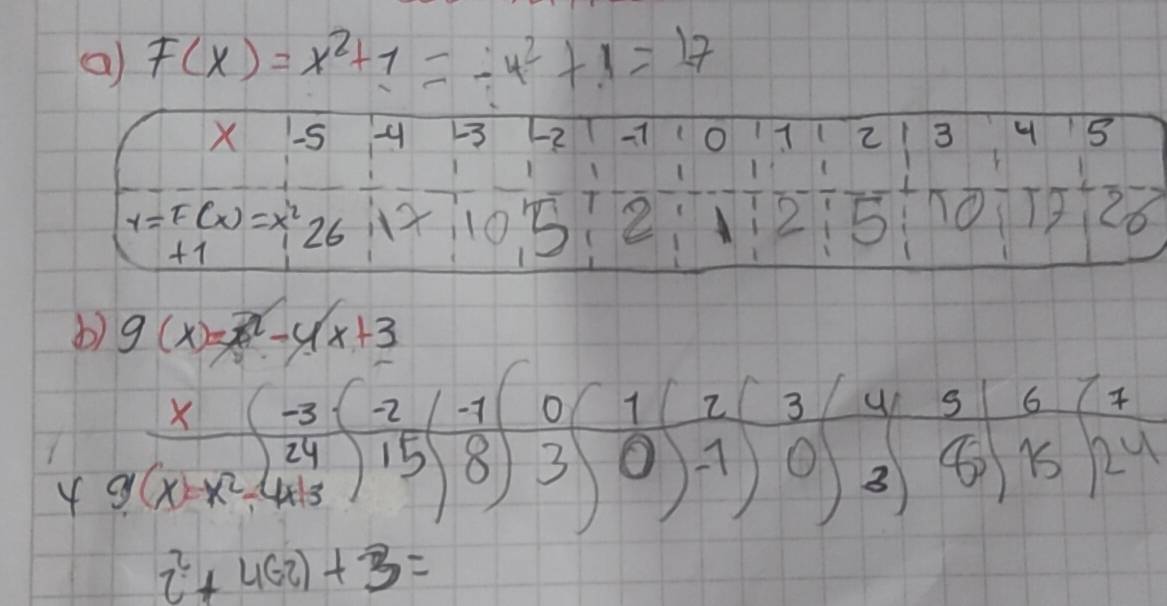 a) F(x) = x² + 1 = -4² + 1 = 17
x -5 -4 -3 -2 -1 0 1 2 3 4 5
y = F(x) = x² + 1 26 17 10 5 2 1 2 5 10 17 26
b) g(x) = x² - 4x + 3
x -3 -2 -1 0 1 2 3 4 5 6 7
y g(x) = x² - 4x + 3 24 15 8 3 0 -1 0 3 8 15 24
2² + 4(-2) + 3 =